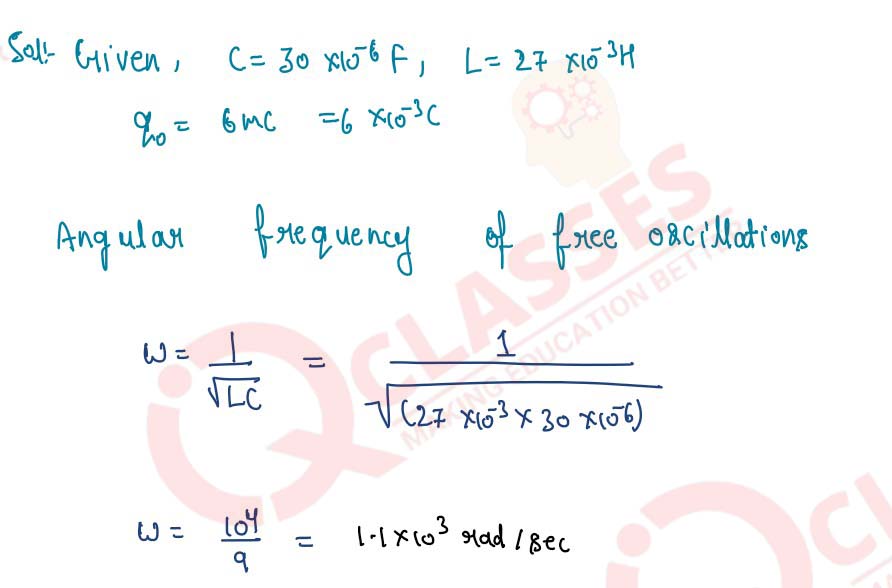 Sol:- Given, C = 30 ×10⁻⁶ F, L = 27 ×10⁻³H
q₀ = 6 mC = 6 ×10⁻³C
Angular frequency of free oscillations
ω = 1/√LC = 1/√(27 ×10⁻³ × 30 ×10⁻⁶)
ω = 10⁴/9 = 1.1×10³ rad/sec
IQ CLASSES
MAKING EDUCATION BETTER
IQ CL